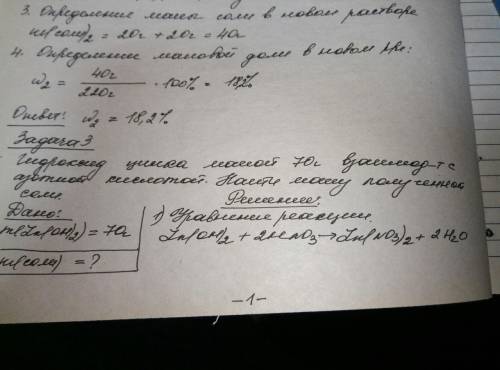 3. Определение массы соли в новом растворе
m(соли)₂ = 20г + 20г = 40г
4. Определение массовой доли в новом р-ре:
w₂ = 40г / 220г · 100% = 18,2%
Ответ: w₂ = 18,2%
Задача 3
Гидроксид цинка массой 70г взаимод-т с
азотной кислотой. Найти массу полученной
соли.
Решение:
Дано:
m(Zn(OH)₂) = 70г
m(соли) = ?
1) Уравнение реакции.
Zn(OH)₂ + 2HNO₃ → Zn(NO₃)₂ + 2H₂O
-1-